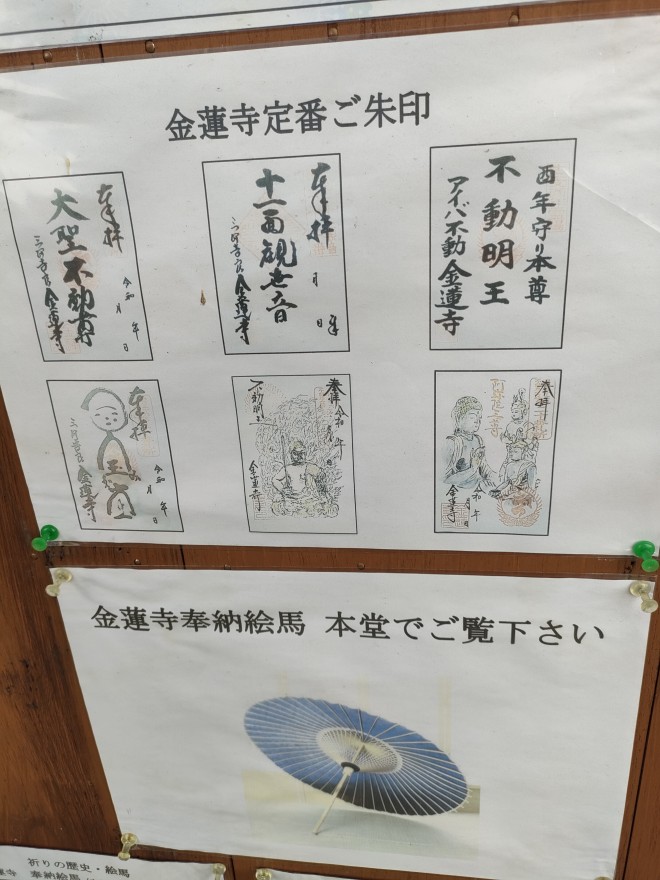 金蓮寺定番ご朱印
奉拝
大聖不動尊
令和 年
月 日
金蓮寺
奉拝
十一面観世音
月
日
金蓮寺
酉年守り本尊
不動明王
アイバ不動金蓮寺
奉拝
令和 年
月 日
金蓮寺
奉拝
令和 年
不動明王
金蓮寺
奉拝
令和 年
月 日
金蓮寺
金蓮寺奉納絵馬 本堂でご覧下さい
祈りの歴史・絵馬
蓮寺 奉納絵馬